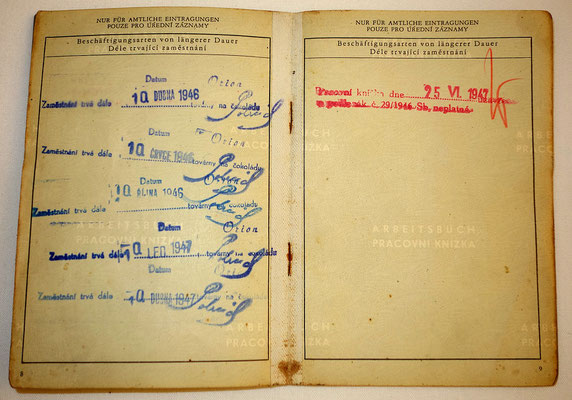 NUR FÜR AMTLICHE EINTRAGUNGEN
POUZE PRO ÚŘEDNÍ ZÁZNAMY
Beschäftigungsarten von längerer Dauer
Déle trvající zaměstnání
Datum Orion
Zaměstnání trvá dále 10. DUBNA 1946 továrny na čokoládu
Datum Orion
Zaměstnání trvá dále 10. ČERVCE 1946 továrny na čokoládu
Datum Orion
Zaměstnání trvá dále 10. ŘÍJNA 1946 továrny čokoládu
Datum Orion
Zaměstnání trvá dále 10. LED 1947 továrny na čokoládu
Datum Orion
Zaměstnání trvá dále 10. DUBNA 1947 továrny na čokoládu
ARBEITSBUCH
PRACOVNÍ KNÍŽKA
8
NUR FÜR AMTLICHE EINTRAGUNGEN
POUZE PRO ÚŘEDNÍ ZÁZNAMY
Beschäftigungsarten von längerer Dauer
Déle trvající zaměstnání
Pracovní knížka dne 25. VI. 1947
zák č. 29/1946 Sb, neplatná.
ARBEITSBUCH
PRACOVNÍ KNÍŽKA
ARBEITSBUCH
PRACOVNÍ KNÍŽKA
9